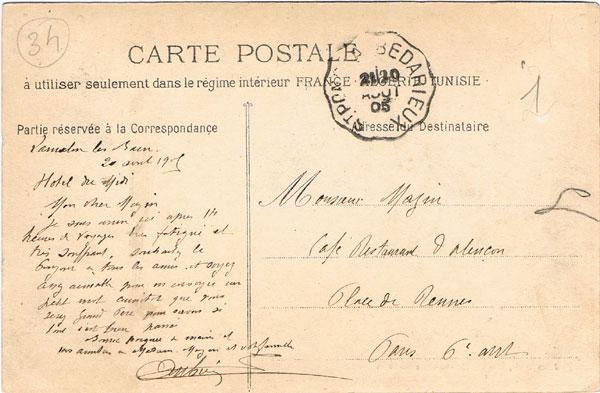 34
CARTE POSTALE
à utiliser seulement dans le régime intérieur FRANCE · ALGÉRIE TUNISIE ·
ST PONS À BEDARIEUX
21 10
AOUT
05
1
Partie réservée à la Correspondance
Adresse du Destinataire
Lamalou les Bains
20 août 1905
Hotel du Midi
Mon cher Mazin
Je suis arrivé ici apres 14
heures de voyages très fatigué et
très souffrant, souhaitez le
bonjour a tous les amis, et soyez
assez aimable pour m envoyer un
petit mot aussitot que vous
serez grand Père pour savoir si
tout s'est bien passé
Bonne poignée de main et
mes amitiés a Madame Mazin et votre famille
Monsieur Mazin
Café Restaurant d'Alençon
Place de Rennes
Paris 6e arrt